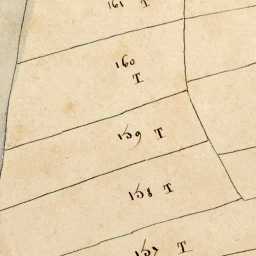 161 T
160
T
159 T
158 T
157 T